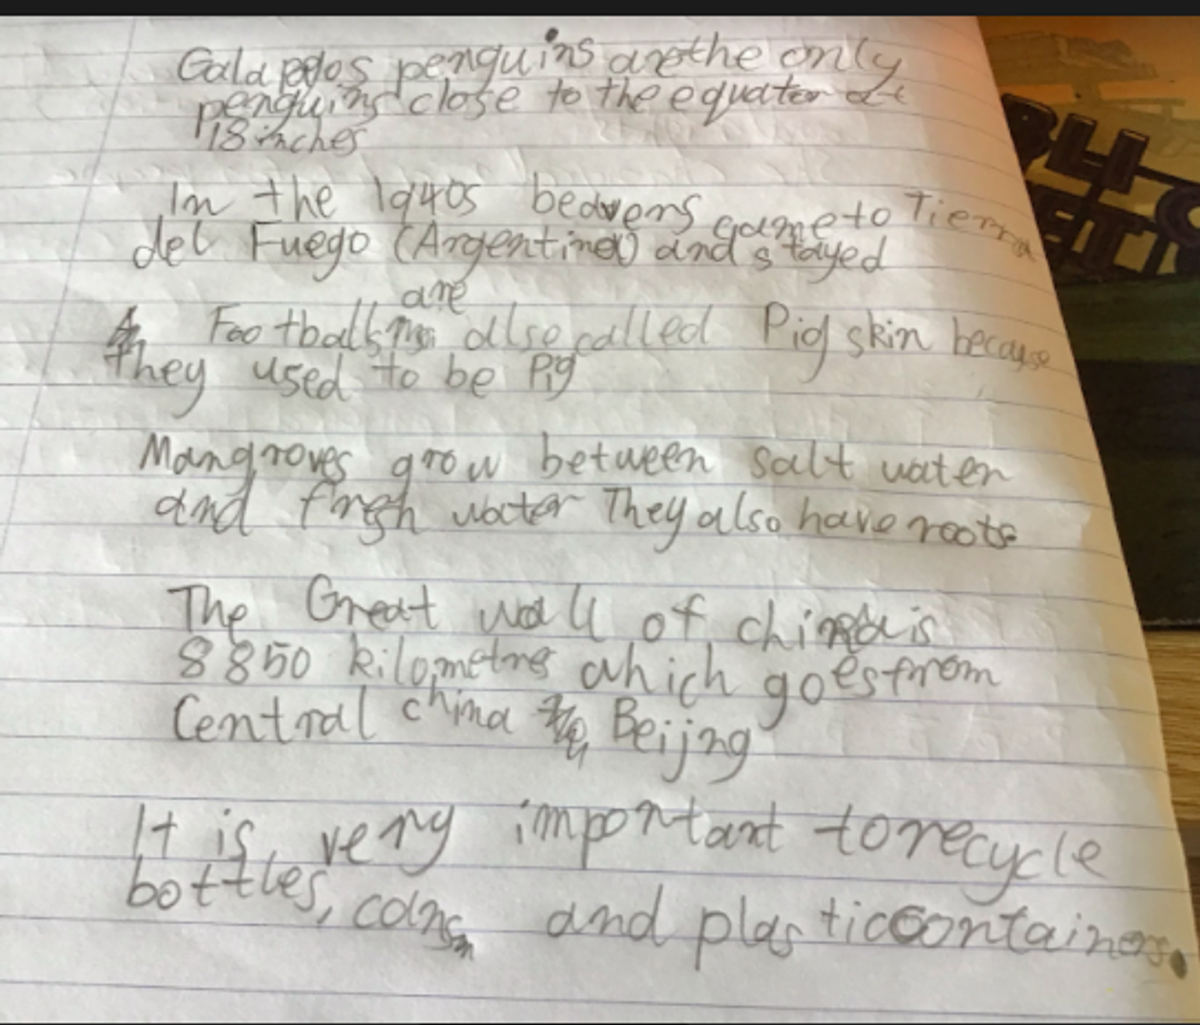 Galapagos penguins are the only
penguins close to the equator at
18 inches
In the 1940s beavers came to Tierra
del Fuego (Argentina) and stayed
are
Footballs also called Pig skin because
they used to be Pig
Mangroves grow between salt water
and fresh water They also have roots
The Great wall of china is
8850 kilometres which goes from
Central china to Beijing
It is very important to recycle
bottles, cans, and plastic containers.